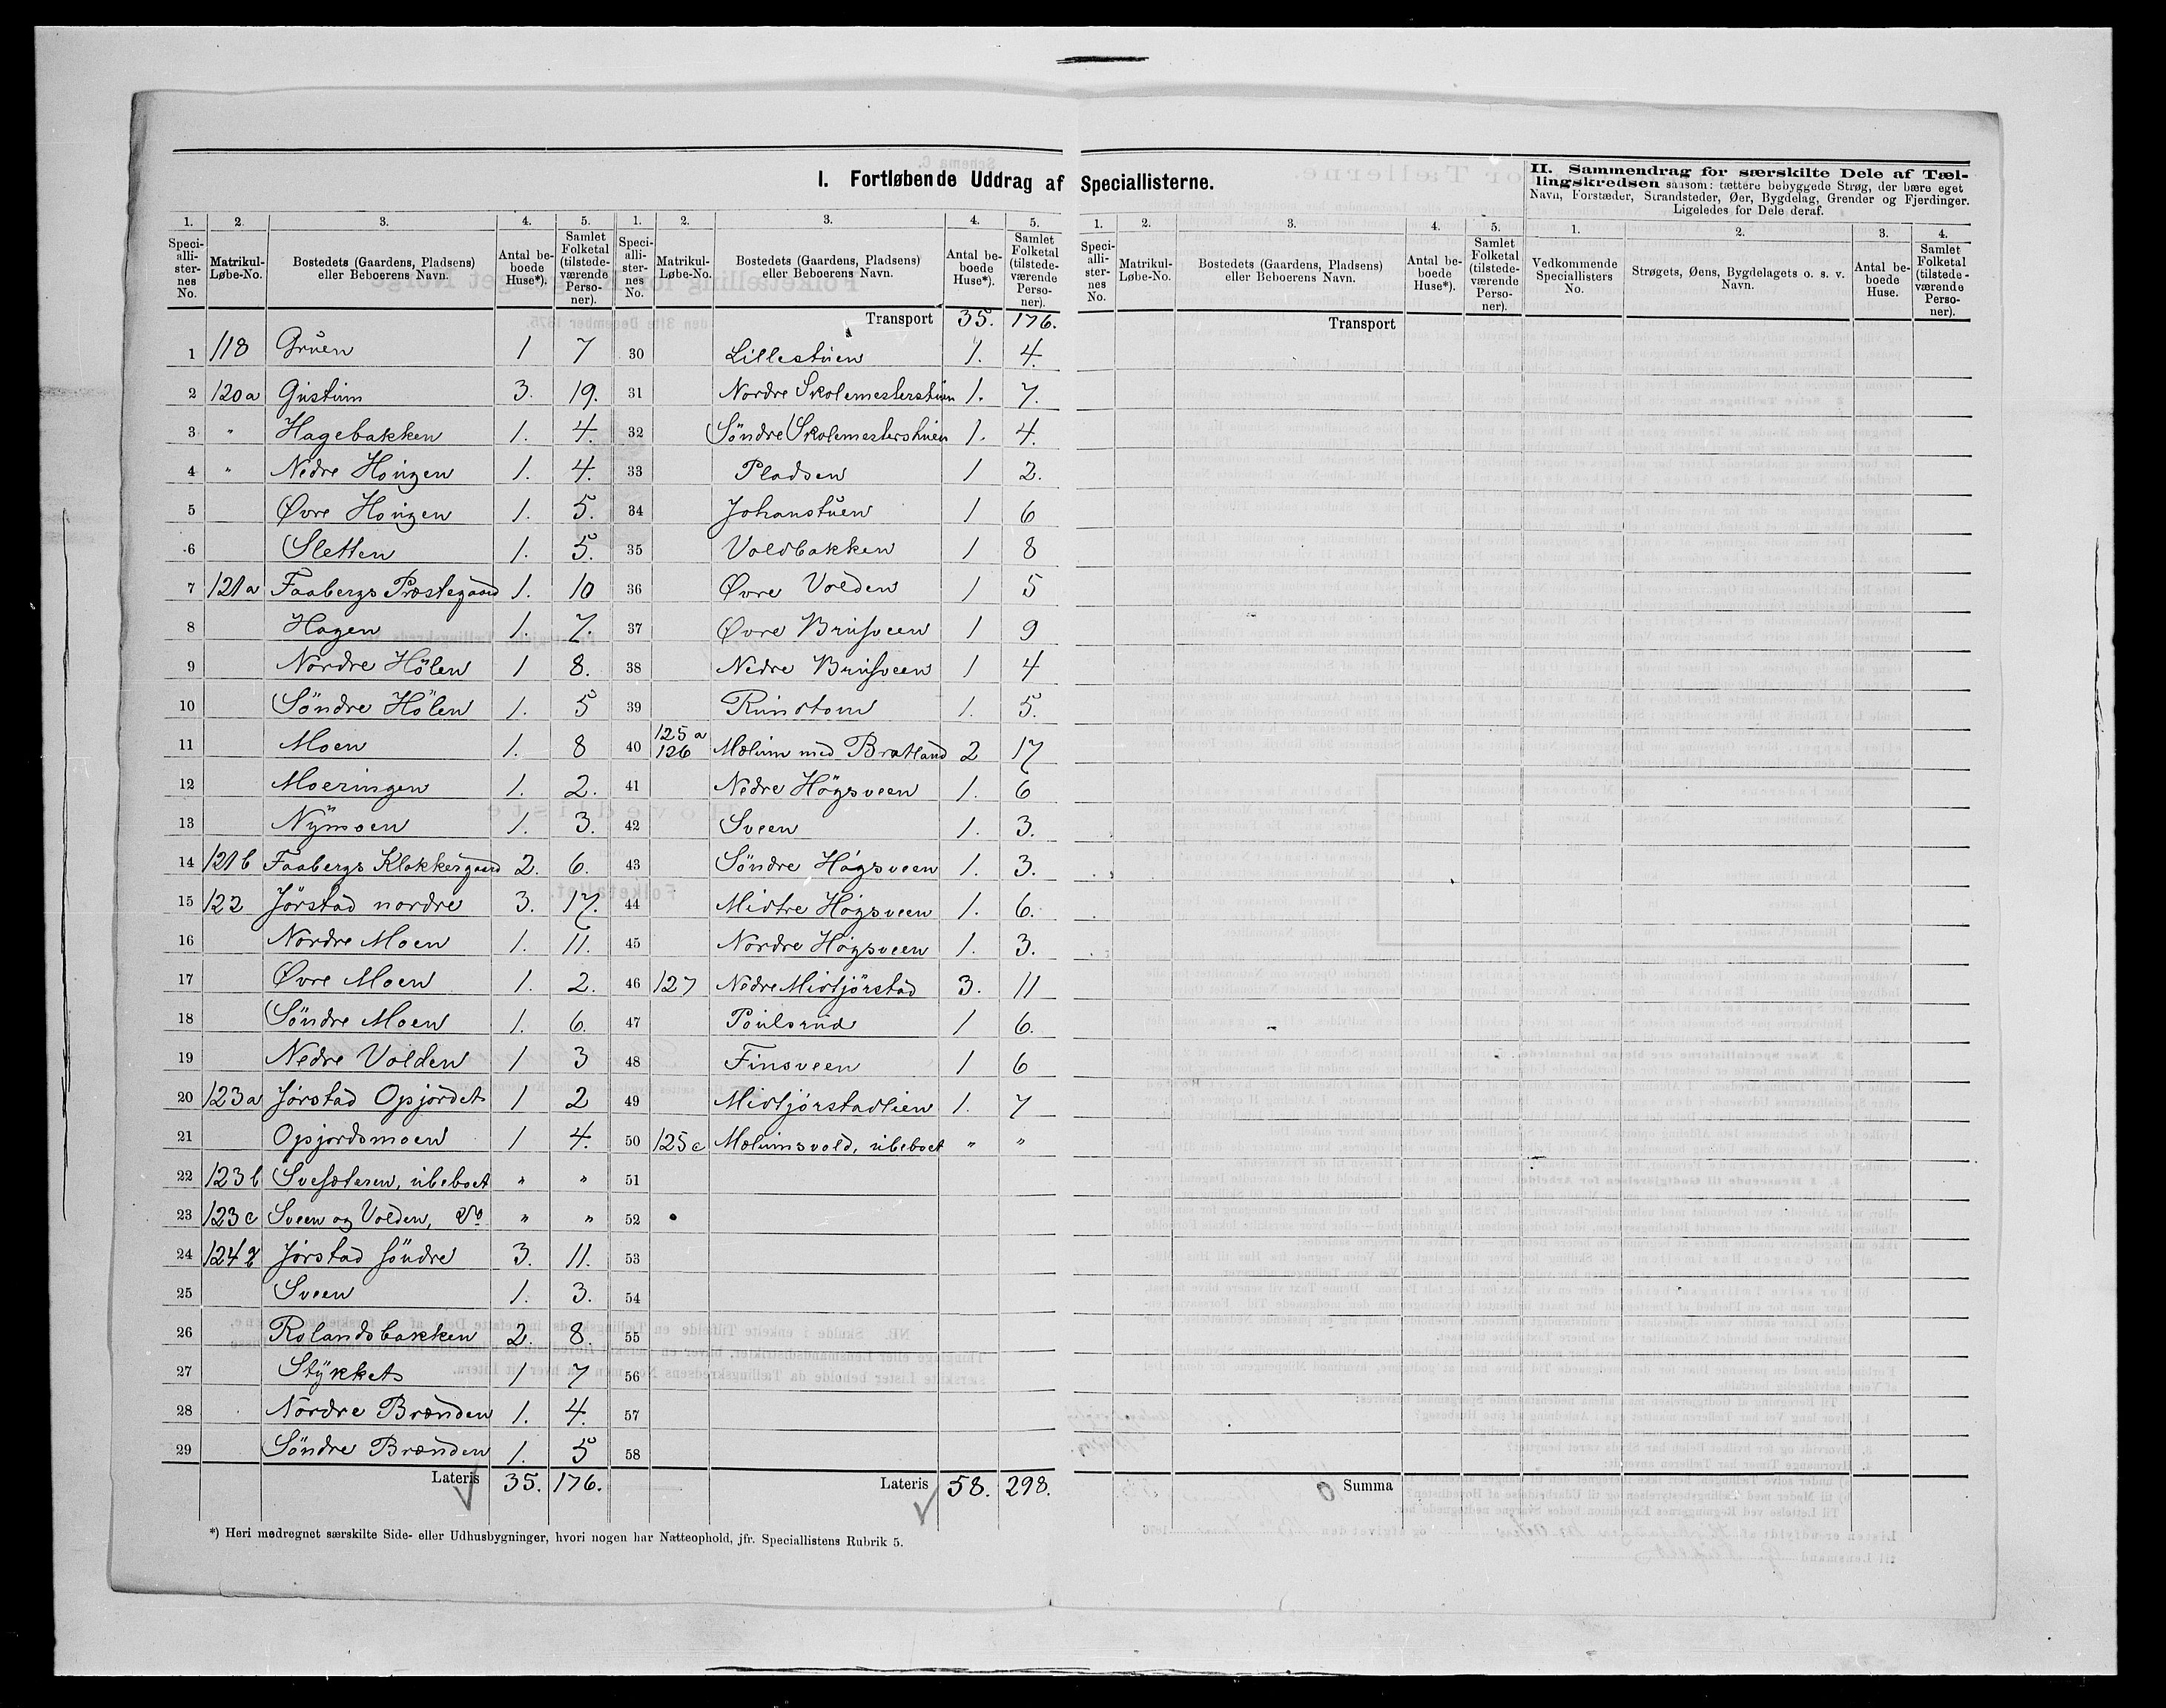 I. Fortløbende Uddrag af Speciallisterne.
II. Sammendrag for særskilte Dele af Tæl-
lingskredsen saasom: tættere bebyggede Strøg, der bære eget
Navn, Forstæder, Strandsteder, Øer, Bygdelag, Grender og Fjerdinger.
Ligeledes for Dele deraf.
1. 2. 3. 4. 5.
Speci-alli-ster-nes No. Matrikul-Løbe-No. Bostedets (Gaardens, Pladsens) eller Beboerens Navn. Antal be-boede Huse*). Samlet Folketal (tilstede-værende Perso-ner).
1 118 Gruen 1 7
2 120a Gustum 3. 19.
3 " Hagebakken 1. 4.
4 " Nedre Hougen 1. 4.
5 Øvre Hougen 1. 5.
6 Sletten 1. 5.
7 121a Faabergs Præstegaard 1. 10
8 Hagen 1. 7.
9 Nordre Hölen 1 8.
10 Söndre Hölen 1. 5
11 Moen 1. 8
12 Moeringen 1. 2.
13 Nymoen 1. 3.
14 121b Faabergs Klokkergaard 2. 6.
15 122 Jörstad nordre 3. 17.
16 Nordre Moen 1. 11.
17 Øvre Moen 1. 2.
18 Söndre Moen 1. 6.
19 Nedre Volden 1 3
20 123a Jörstad Opjordet 1 2
21 Opjordsmoen 1 4.
22 123b Svesæteren, ubeboet " "
23 123c Sveen og Volden, Do " "
24 124 Jörstad söndre 3. 11.
25 Sveen 1. 3.
26 Rolandsbakken 2. 8.
27 Stykket 1 7
28 Nordre Brænden 1. 4.
29 Söndre Brænden 1. 5
Lateris 35. 176.
1. 2. 3. 4. 5.
Speci-alli-ster-nes No. Matrikul-Løbe-No. Bostedets (Gaardens, Pladsens) eller Beboerens Navn. Antal be-boede Huse*). Samlet Folketal (tilstede-værende Perso-ner).
Transport 35. 176.
30 Lillestuen 1. 4.
31 Nordre Skolemesterstuen 1. 7.
32 Söndre Skolemesterstuen 1. 4.
33 Pladsen 1 2.
34 Johanstuen 1 6
35 Voldbakken 1 8
36 Øvre Volden 1 5
37 Øvre Brusveen 1 9
38 Nedre Brusveen 1 4
39 Rundtom 1. 5.
40 125a 126 Mælum med Bratland 2 17
41 Nedre Högsveen 1. 6
42 Sveen 1. 3.
43 Söndre Högsveen 1. 3.
44 Midtre Högsveen 1. 6.
45 Nordre Högsveen 1. 3.
46 127 Nedre Midtjörstad 3. 11
47 Poulsrud 1 6.
48 Finsveen 1 6
49 Midtjörstadlien 1. 7
50 125c Mælumsvold, ubeboet " "
51
52
53
54
55
56
57
58
Lateris 58. 298.
1. 2. 3. 4. 5.
Speci-alli-ster-nes No. Matrikul-Løbe-No. Bostedets (Gaardens, Pladsens) eller Beboerens Navn. Antal be-boede Huse*). Samlet Folketal (tilstede-værende Perso-ner).
Transport
Summa
1. 2. 3. 4.
Vedkommende Speciallisters No. Strøgets, Øens, Bygdelagets o. s. v. Navn. Antal be-boede Huse. Samlet Folketal (tilstede-værende Perso-ner).
*) Heri medregnet særskilte Side- eller Udhusbygninger, hvori nogen har Natteophold, jfr. Speciallistens Rubrik 5.